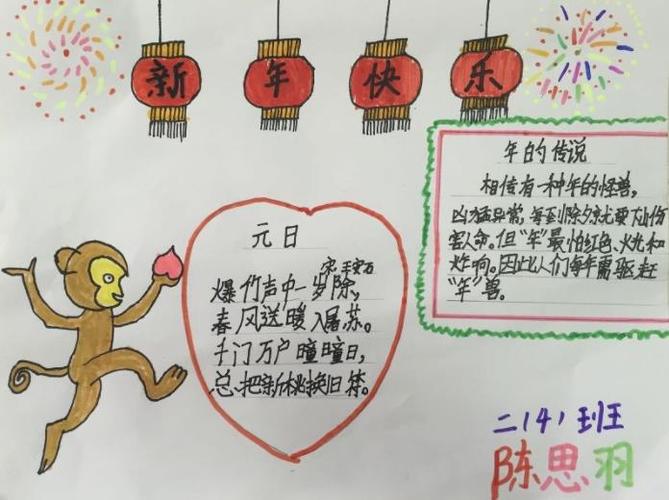 新年快乐
年的传说
相传有一种年的怪兽，
凶猛异常，每到除夕就要下山伤
害人命。但“年”最怕红色、火光和
炸响。因此人们每年需驱赶
“年”兽。
元日
宋 王安石
爆竹声中一岁除，
春风送暖入屠苏。
千门万户曈曈日，
总把新桃换旧符。
二(4)班
陈思羽